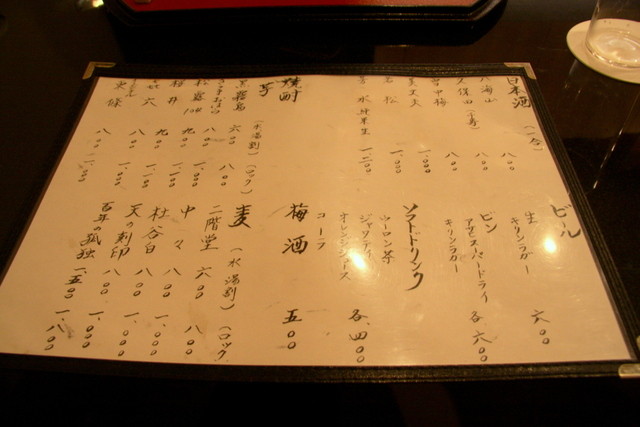 日本酒 (一合)
八海山 八〇〇
久保田(千寿) 八〇〇
雪中梅 八〇〇
美丈夫 一、〇〇〇
一、〇〇〇
一、二〇〇
焼酎
芋 (水湯割) (ロック)
黒霧島 六〇〇 八〇〇
さつまおはら 八〇〇 一、〇〇〇
松露104 九〇〇 一、〇〇〇
九〇〇 一、〇〇〇
八〇〇 一、〇〇〇
八〇〇 一、〇〇〇
ビール
生
キリンラガー 六〇〇
ビン
アサヒスーパードライ
キリンラガー 各六〇〇
ソフトドリンク
ウーロン茶
ジャスミンティ
オレンジジュース
コーラ 各、四〇〇
梅酒 五〇〇
麦 (水湯割) (ロック)
二階堂 六〇〇 八〇〇
中々 八〇〇 一、〇〇〇
杜谷白 八〇〇 一、〇〇〇
天の刻印 八〇〇 一、〇〇〇
百年の孤独 一、五〇〇 一、八〇〇